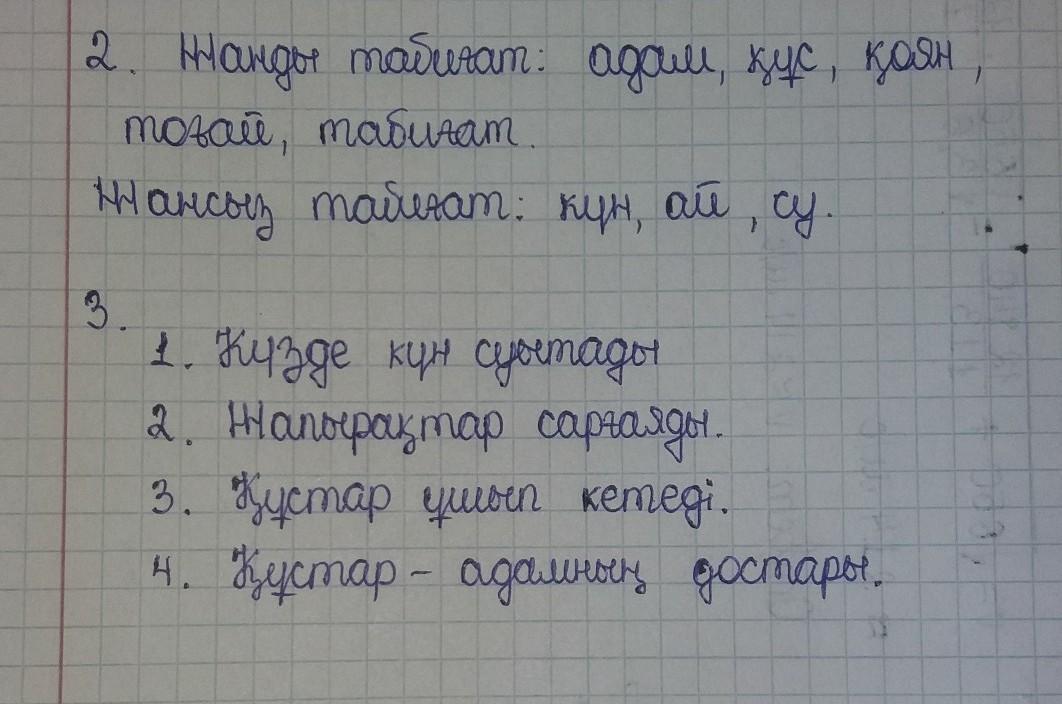 2. Жанды табиғат: адам, құс, қоян,
тоғай, табиғат.
Жансыз табиғат: күн, ай, су.
3.
1. Күзде күн суытады
2. Жапырақтар сарғаяды.
3. Құстар ұшып кетеді.
4. Құстар – адамның достары.